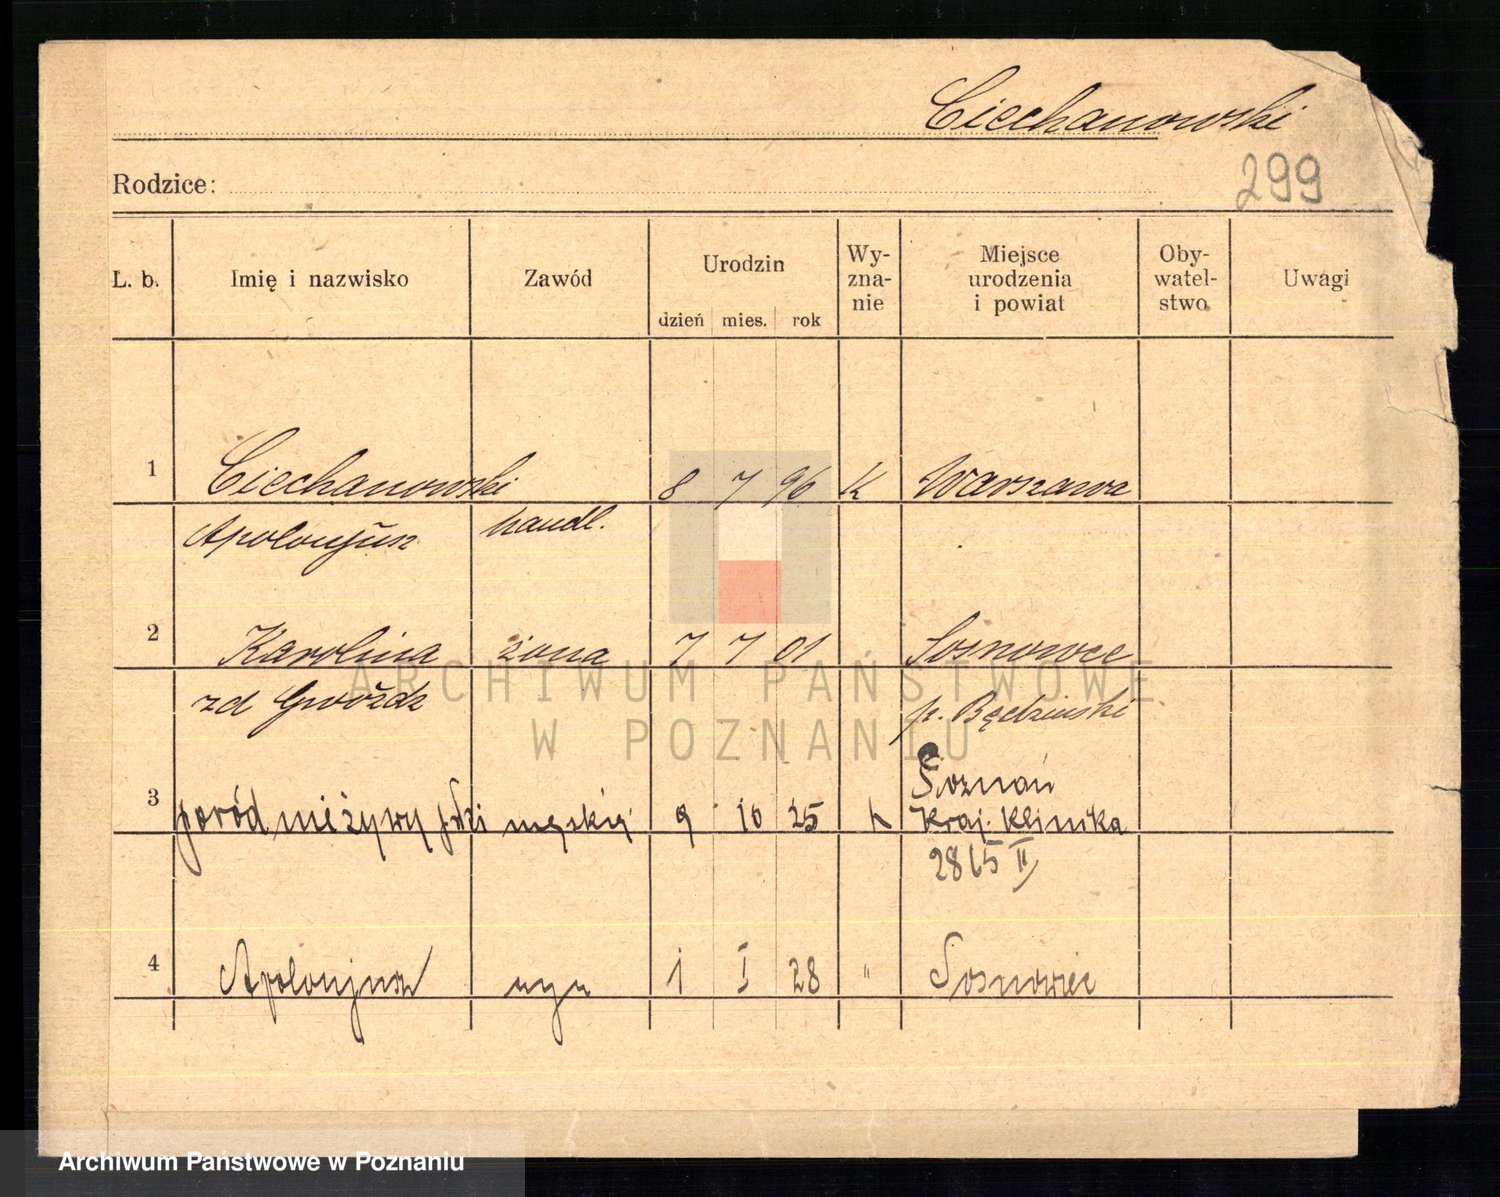 Ciechanowski
299
Rodzice:
L. b. Imię i nazwisko Zawód Urodzin dzień mies. rok Wy-zna-nie Miejsce urodzenia i powiat Oby-watel-stwo Uwagi
1 Ciechanowski 8 7 96 K Warszawa
Apolonjusz handl.
2 Karolina żona 7 7 01 Sosnowce
zd Gwóźdz p. Będziński
Poznań
3 poród nieżywy płci męskiej 9 10 25 Kraj. Klinika
2865 II
4 Apolonjusz syn 1 I 28 " Sosnowiec
ARCHIWUM PAŃSTWOWE
W POZNANIU
Archiwum Państwowe w Poznaniu